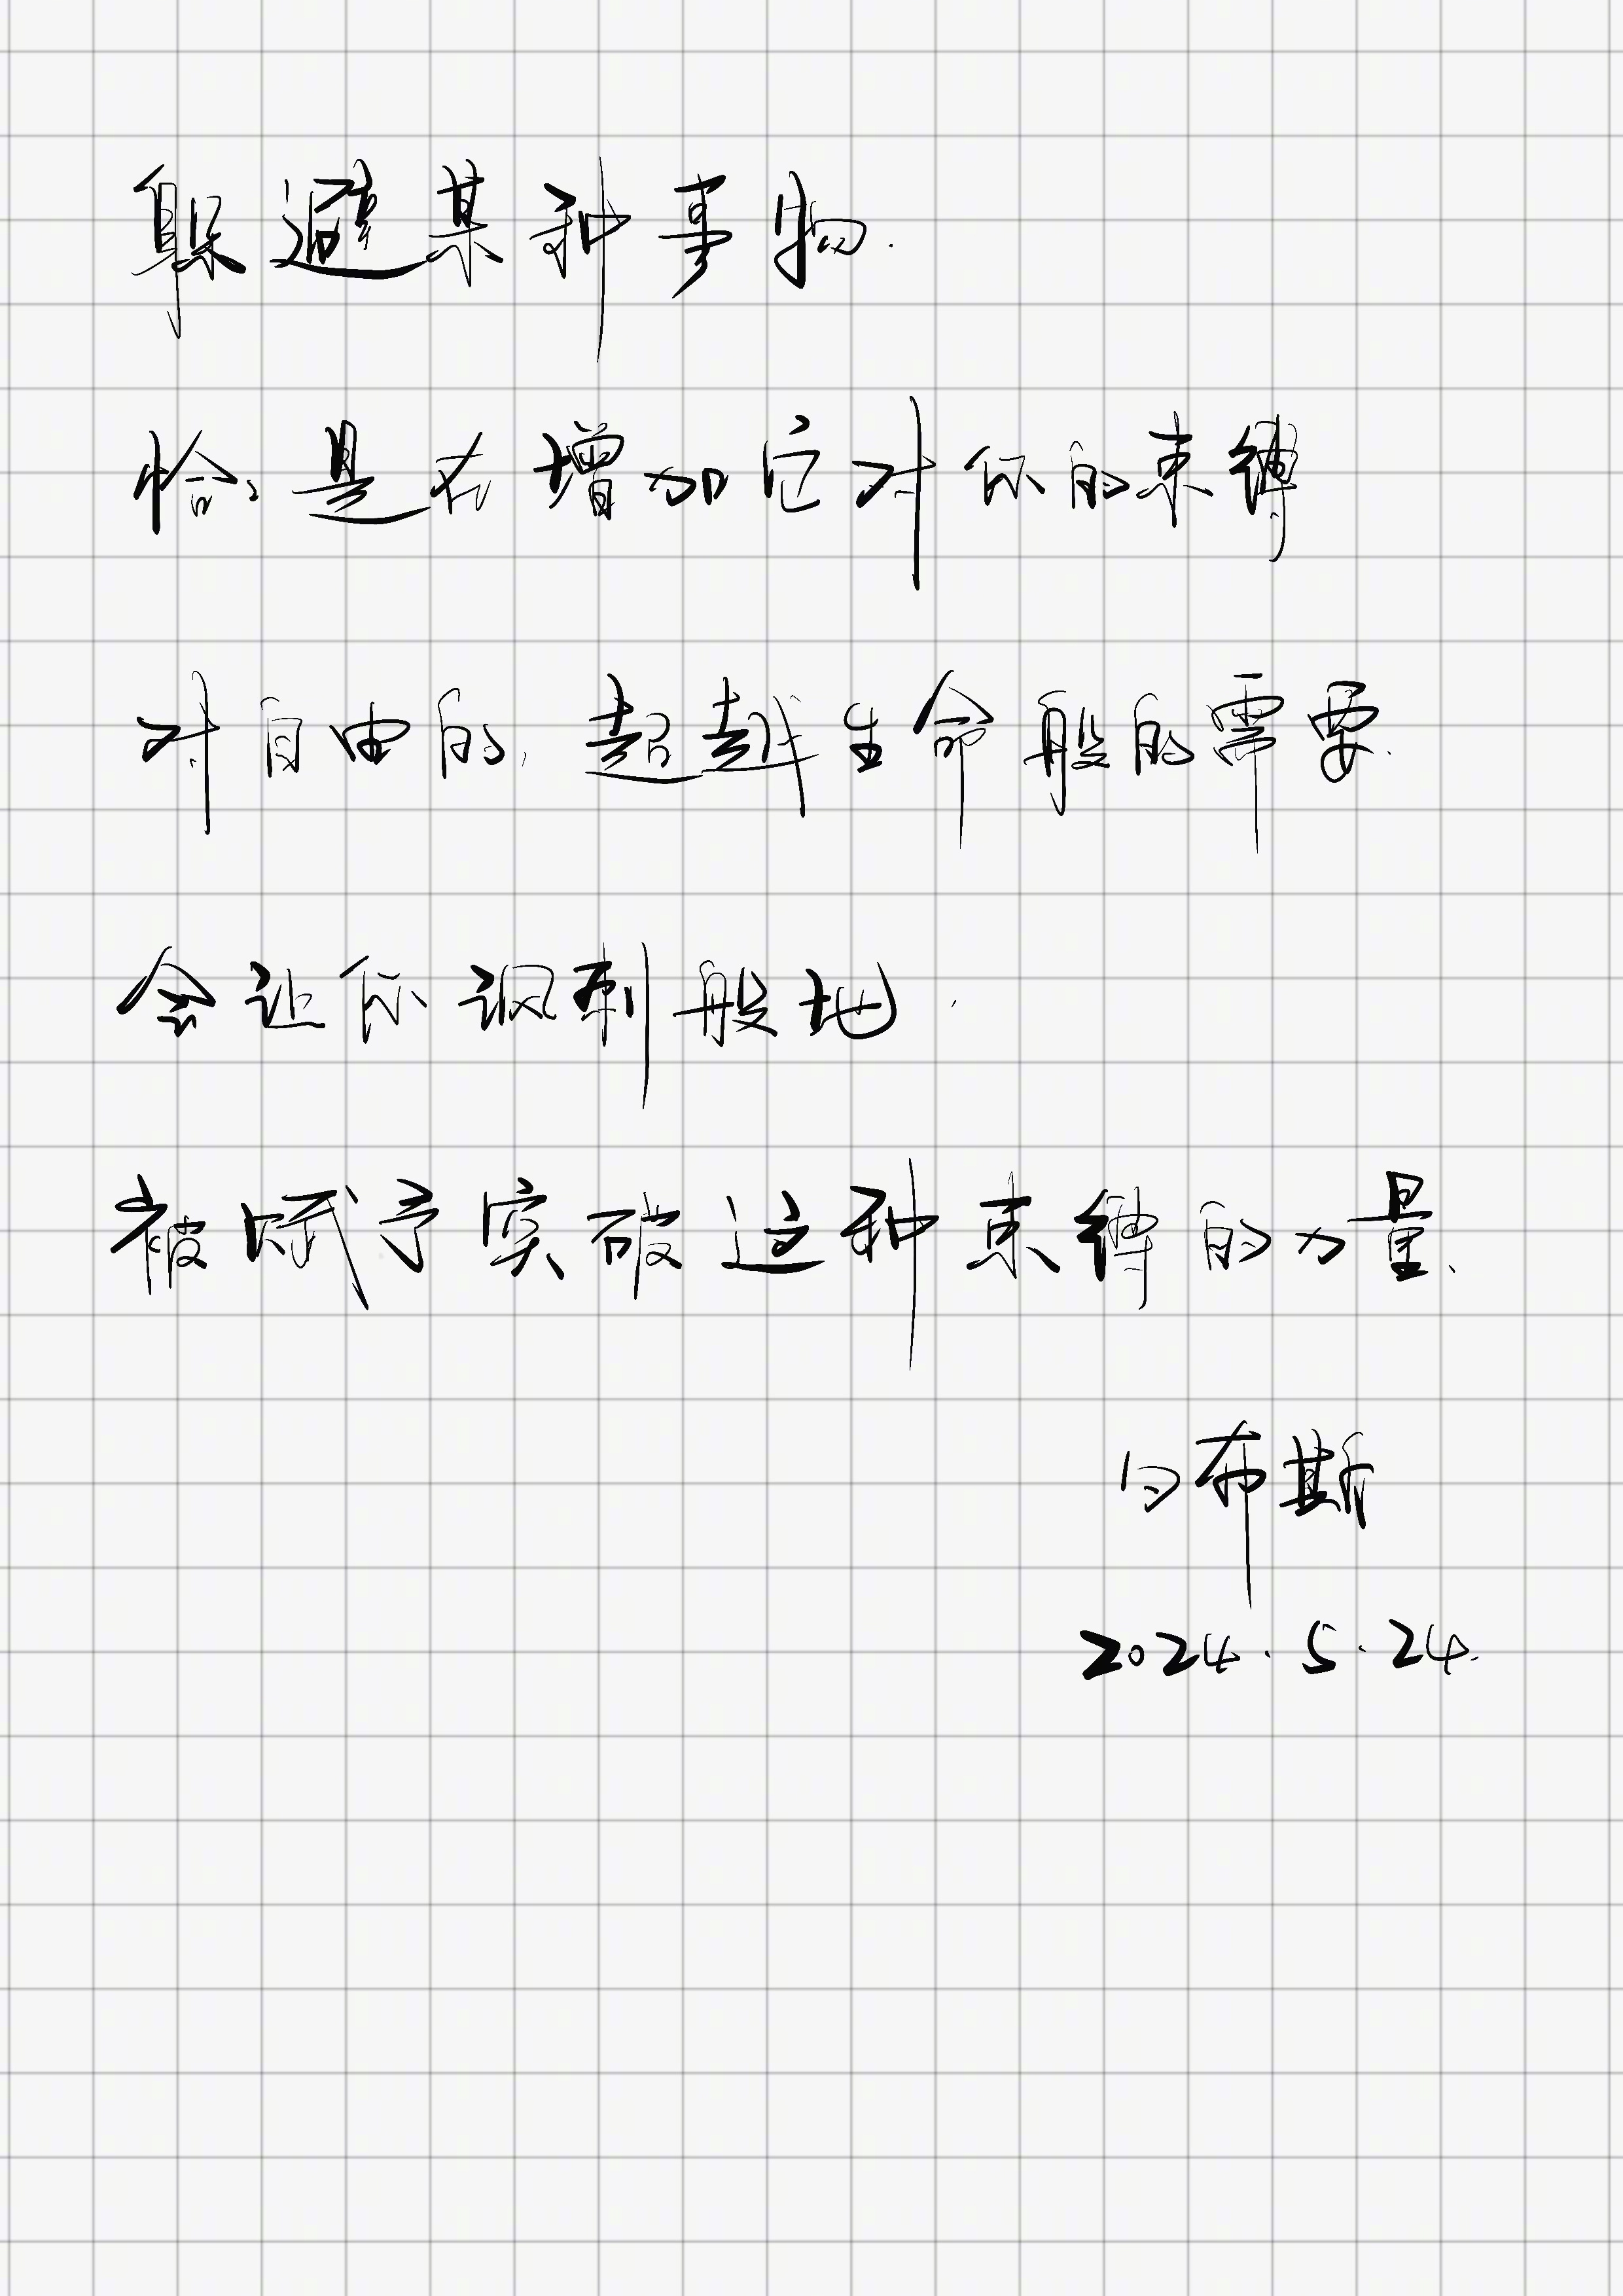 躲避某种事物.
恰恰是在增加它对你的束缚
对自由的,超越生命般的需要.
会让你讽刺般地.
被赋予突破这种束缚的力量.
白布斯
2024.5.24.